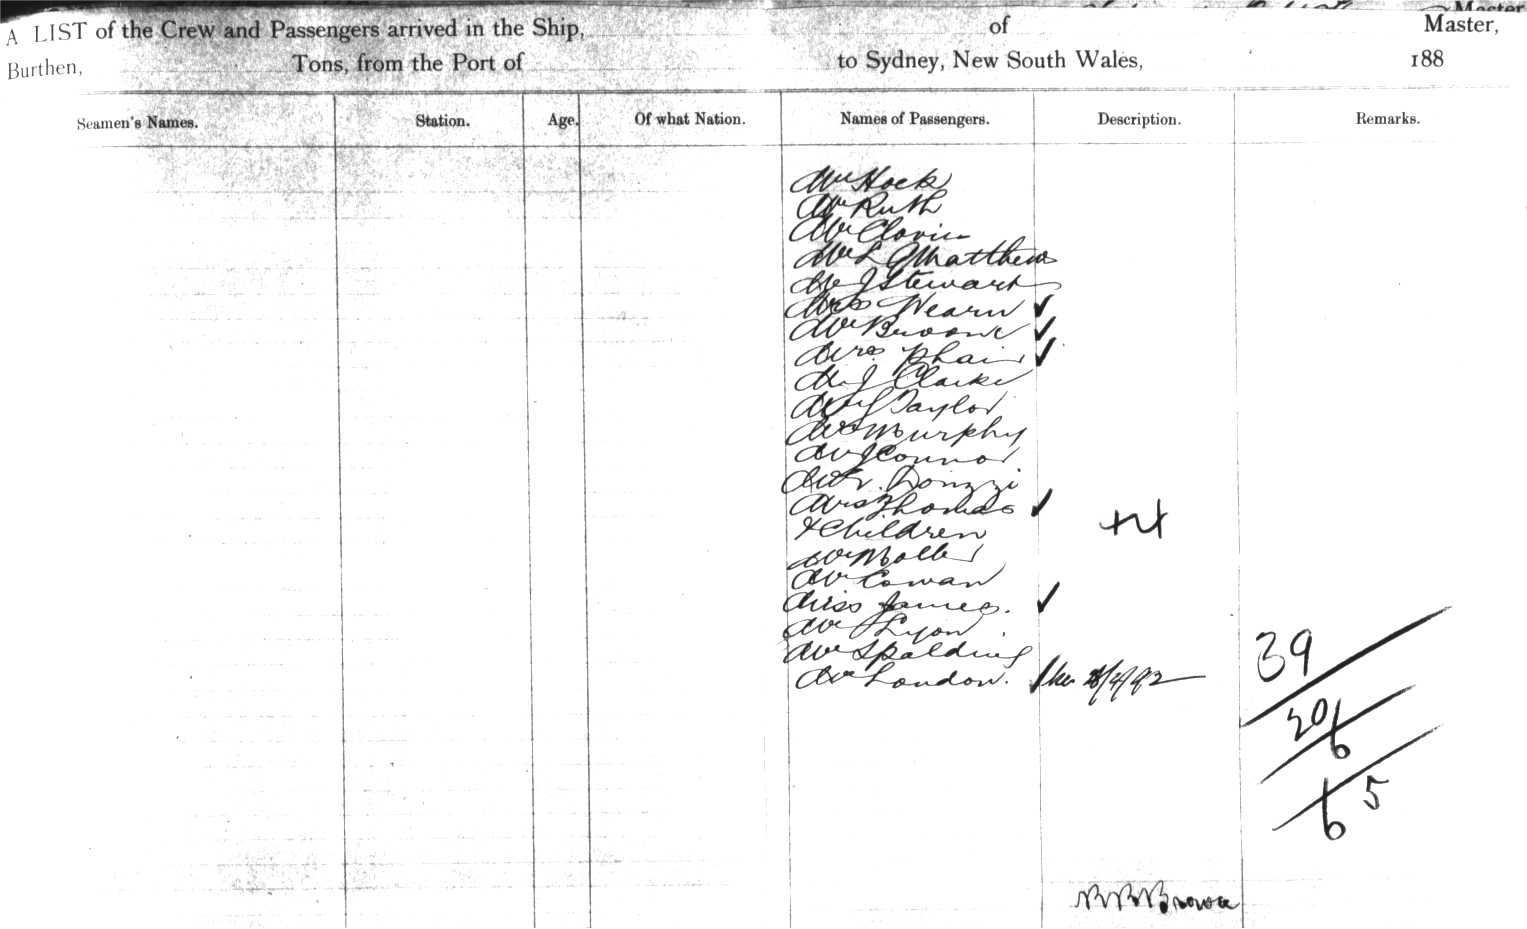 Master
A LIST of the Crew and Passengers arrived in the Ship, of Master,
Burthen, Tons, from the Port of to Sydney, New South Wales, 188
Seamen's Names. Station. Age. Of what Nation. Names of Passengers. Description. Remarks.
Mr Hock
Mr Ruth
Mr Clovin
Mr L G Matthews
Mr J Stewart
Mrs Wearn ✓
Mr Broome ✓
Mrs Phair ✓
Mr J Clarke
Mr J Taylor
Mr Murphy
Mr J Connor
Mr Donzzi
Mrs Thomas ✓
& Children
Mr Moller
Mr Cowan
Miss James. ✓
Mr Lyon
Mr Spalding
Mr London.
39
20/6
6/5
Browne